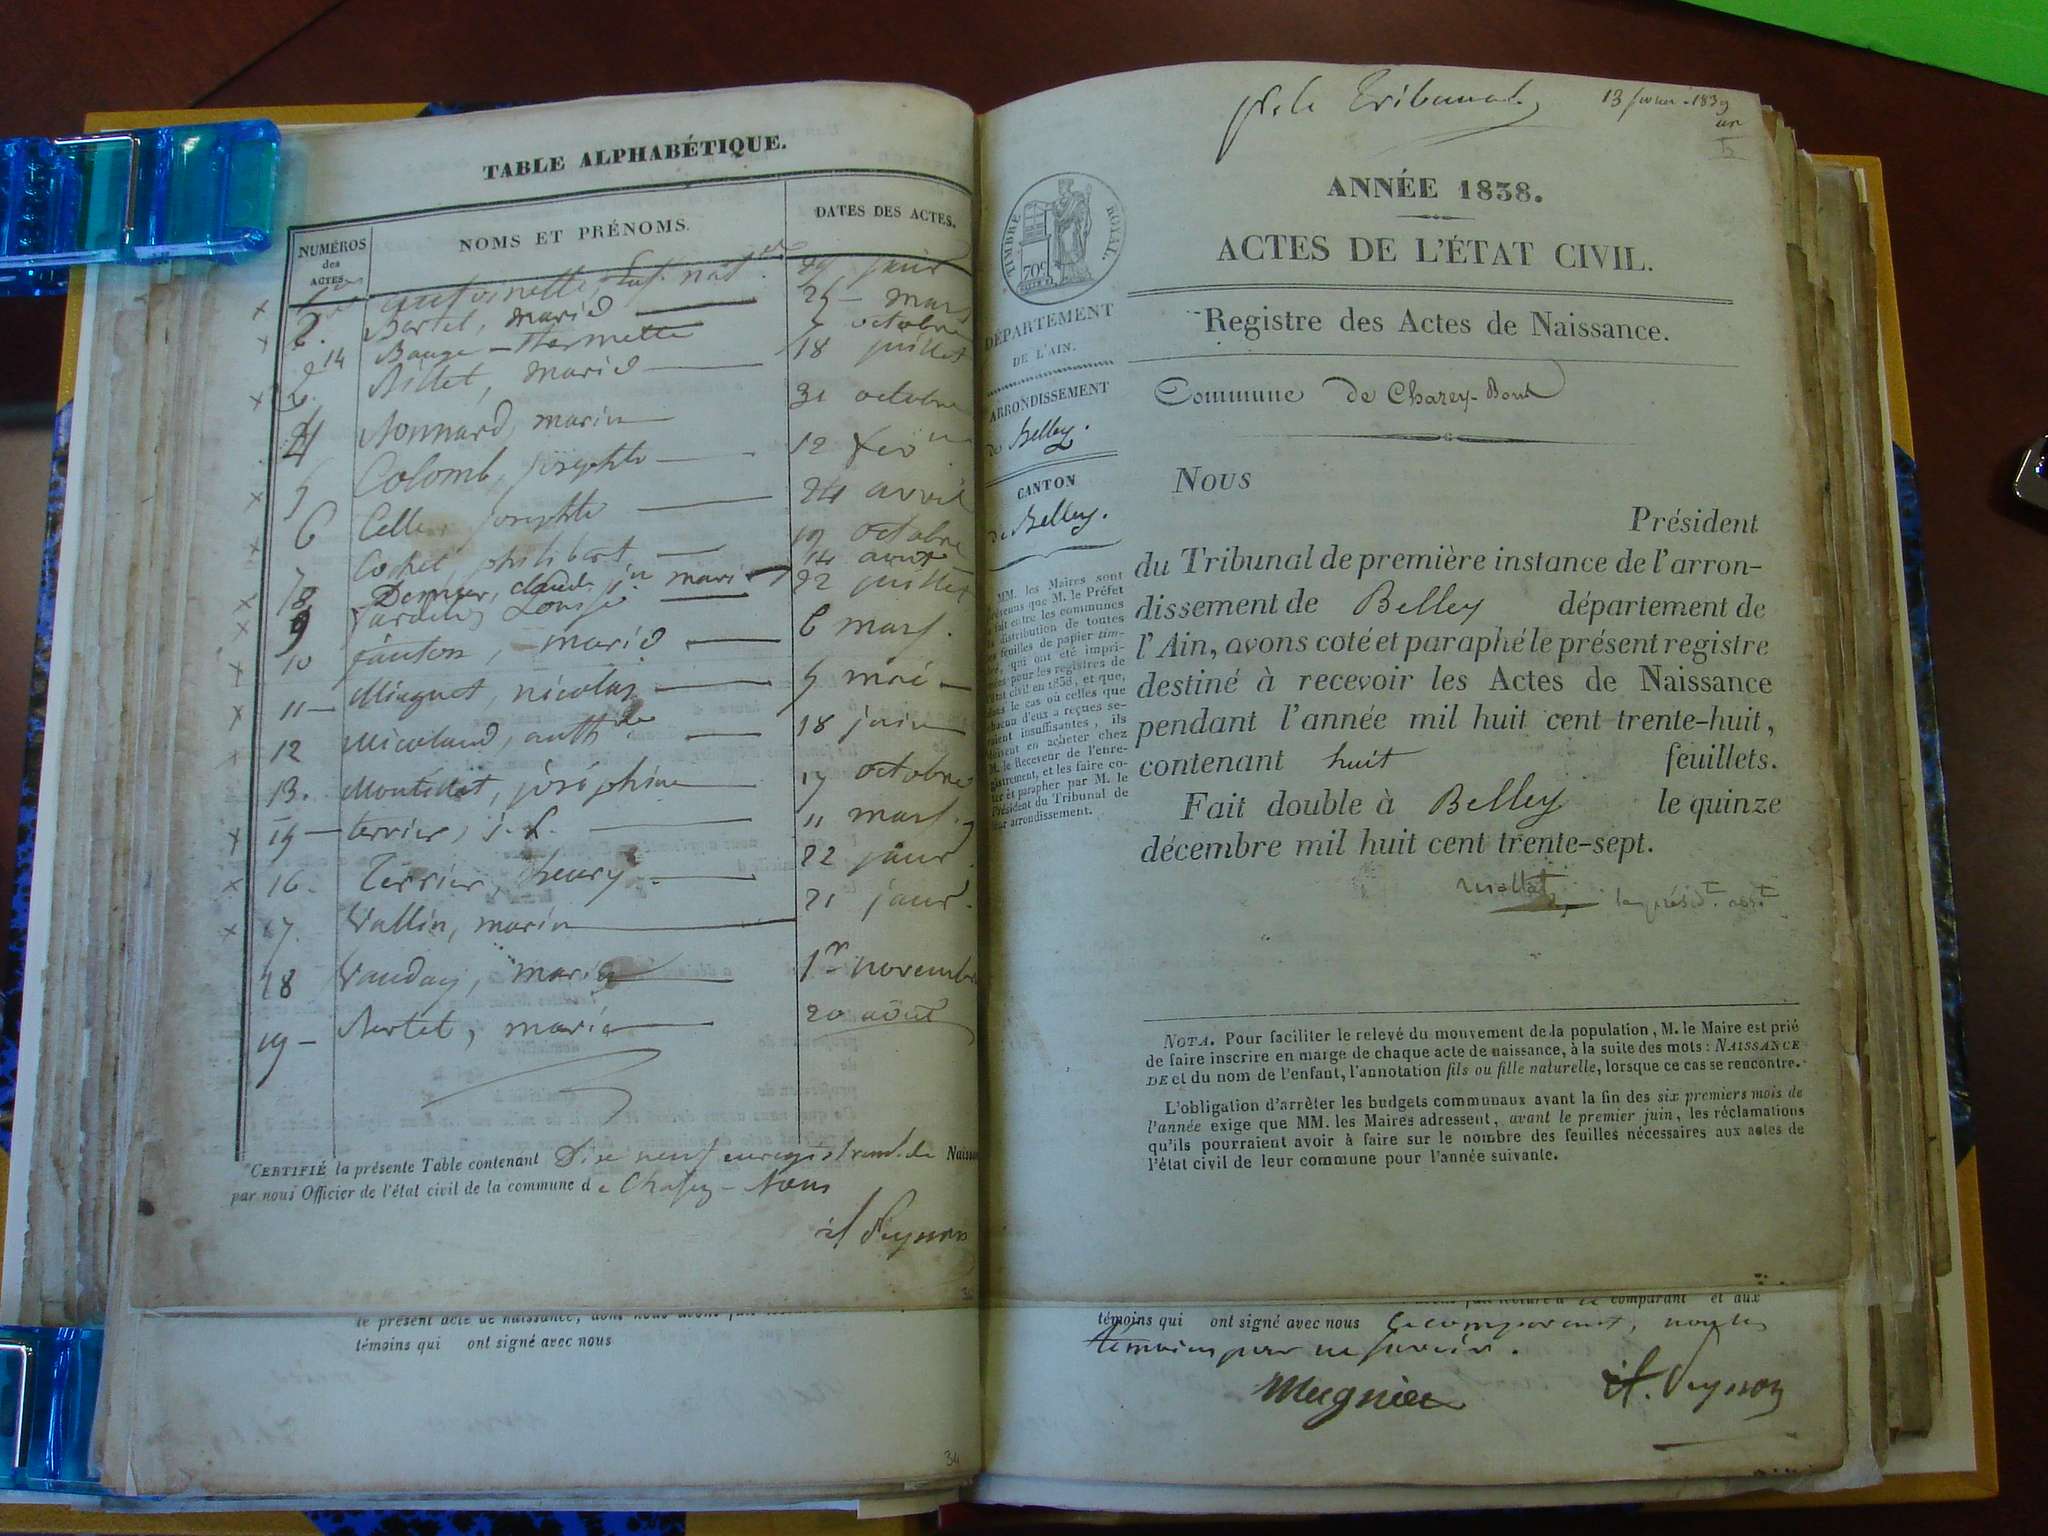 TABLE ALPHABÉTIQUE.
NUMÉROS
des
ACTES
NOMS ET PRÉNOMS.
DATES DES ACTES.
antoinette
Bertet, marie 25 mars
Bauge octobre
14 Billet, marie 18 juillet
4 Bonnard, marie 31 octobre
5 Colomb, josephte 12
6 Celle, josephte 24 avril
7 Cochet, philibert 19 octobre
8 Dernier, claude marie 14 avril
9 Louise 22 juillet
10 fanton, marie 6 mars.
11 Minguet, nicolas 5 mai
12 18 juin
13. Montillet, joséphine 17 octobre
terrier, j. f. 11 mars.
16. Terrier, theury 22 janv.
17. Vallin, marie 21 janv.
18 Vauday, marie 1er novembre
19 Bertet, marie 20 août
CERTIFIÉ la présente Table contenant Dix neuf enregistremt. de Naiss
par nous Officier de l'état civil de la commune de Chasey-Bons
pr. le Tribunal
13 février 1839
ANNÉE 1838.
TIMBRE ROYAL.
70c
ACTES DE L'ÉTAT CIVIL.
DÉPARTEMENT
DE L'AIN.
Registre des Actes de Naissance.
ARRONDISSEMENT
de Belley.
Commune de Chazey-Bons
CANTON
de Belley.
MM. les Maires sont
prévenus que M. le Préfet
a fait entre les communes
la distribution de toutes
les feuilles de papier tim-
bré, qui ont été impri-
mées pour les registres de
l'état civil en 1838, et que,
dans le cas où celles que
chacun d'eux a reçues se-
raient insuffisantes, ils
doivent en acheter chez
M. le Receveur de l'enre-
gistrement, et les faire co-
ter et parapher par M. le
Président du Tribunal de
leur arrondissement.
Nous
Président
du Tribunal de première instance de l'arron-
dissement de Belley département de
l'Ain, avons coté et paraphé le présent registre
destiné à recevoir les Actes de Naissance
pendant l'année mil huit cent trente-huit,
contenant huit feuillets.
Fait double à Belley le quinze
décembre mil huit cent trente-sept.
NOTA. Pour faciliter le relevé du mouvement de la population, M. le Maire est prié
de faire inscrire en marge de chaque acte de naissance, à la suite des mots : NAISSANCE
DE et du nom de l'enfant, l'annotation fils ou fille naturelle, lorsque ce cas se rencontre.
L'obligation d'arrêter les budgets communaux avant la fin des six premiers mois de
l'année exige que MM. les Maires adressent, avant le premier juin, les réclamations
qu'ils pourraient avoir à faire sur le nombre des feuilles nécessaires aux actes de
l'état civil de leur commune pour l'année suivante.
le présent acte de naissance, dont nous avons
témoins qui ont signé avec nous
34
comparant et aux
témoins qui ont signé avec nous le comparant, non les
témoins pour ne savoir.
Mugnier